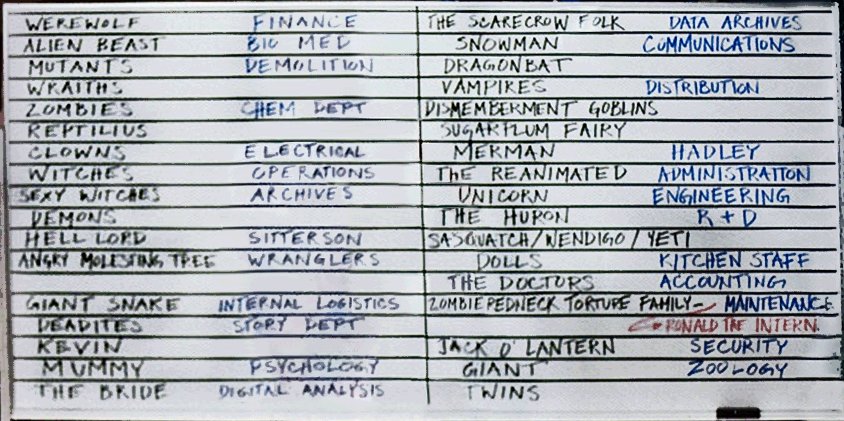 WEREWOLF FINANCE
ALIEN BEAST BIO MED
MUTANTS DEMOLITION
WRAITHS
ZOMBIES CHEM DEPT
REPTILIUS
CLOWNS ELECTRICAL
WITCHES OPERATIONS
SEXY WITCHES ARCHIVES
DEMONS
HELL LORD SITTERSON
ANGRY MOLESTING TREE WRANGLERS
GIANT SNAKE INTERNAL LOGISTICS
DEADITES STORY DEPT
KEVIN
MUMMY PSYCHOLOGY
THE BRIDE DIGITAL ANALYSIS
THE SCARECROW FOLK DATA ARCHIVES
SNOWMAN COMMUNICATIONS
DRAGONBAT
VAMPIRES DISTRIBUTION
DISMEMBERMENT GOBLINS
SUGARPLUM FAIRY
MERMAN HADLEY
THE REANIMATED ADMINISTRATION
UNICORN ENGINEERING
THE HURON R + D
SASQUATCH/WENDIGO/YETI
DOLLS KITCHEN STAFF
THE DOCTORS ACCOUNTING
ZOMBIE REDNECK TORTURE FAMILY - MAINTENANCE
RONALD THE INTERN
JACK O' LANTERN SECURITY
GIANT ZOOLOGY
TWINS